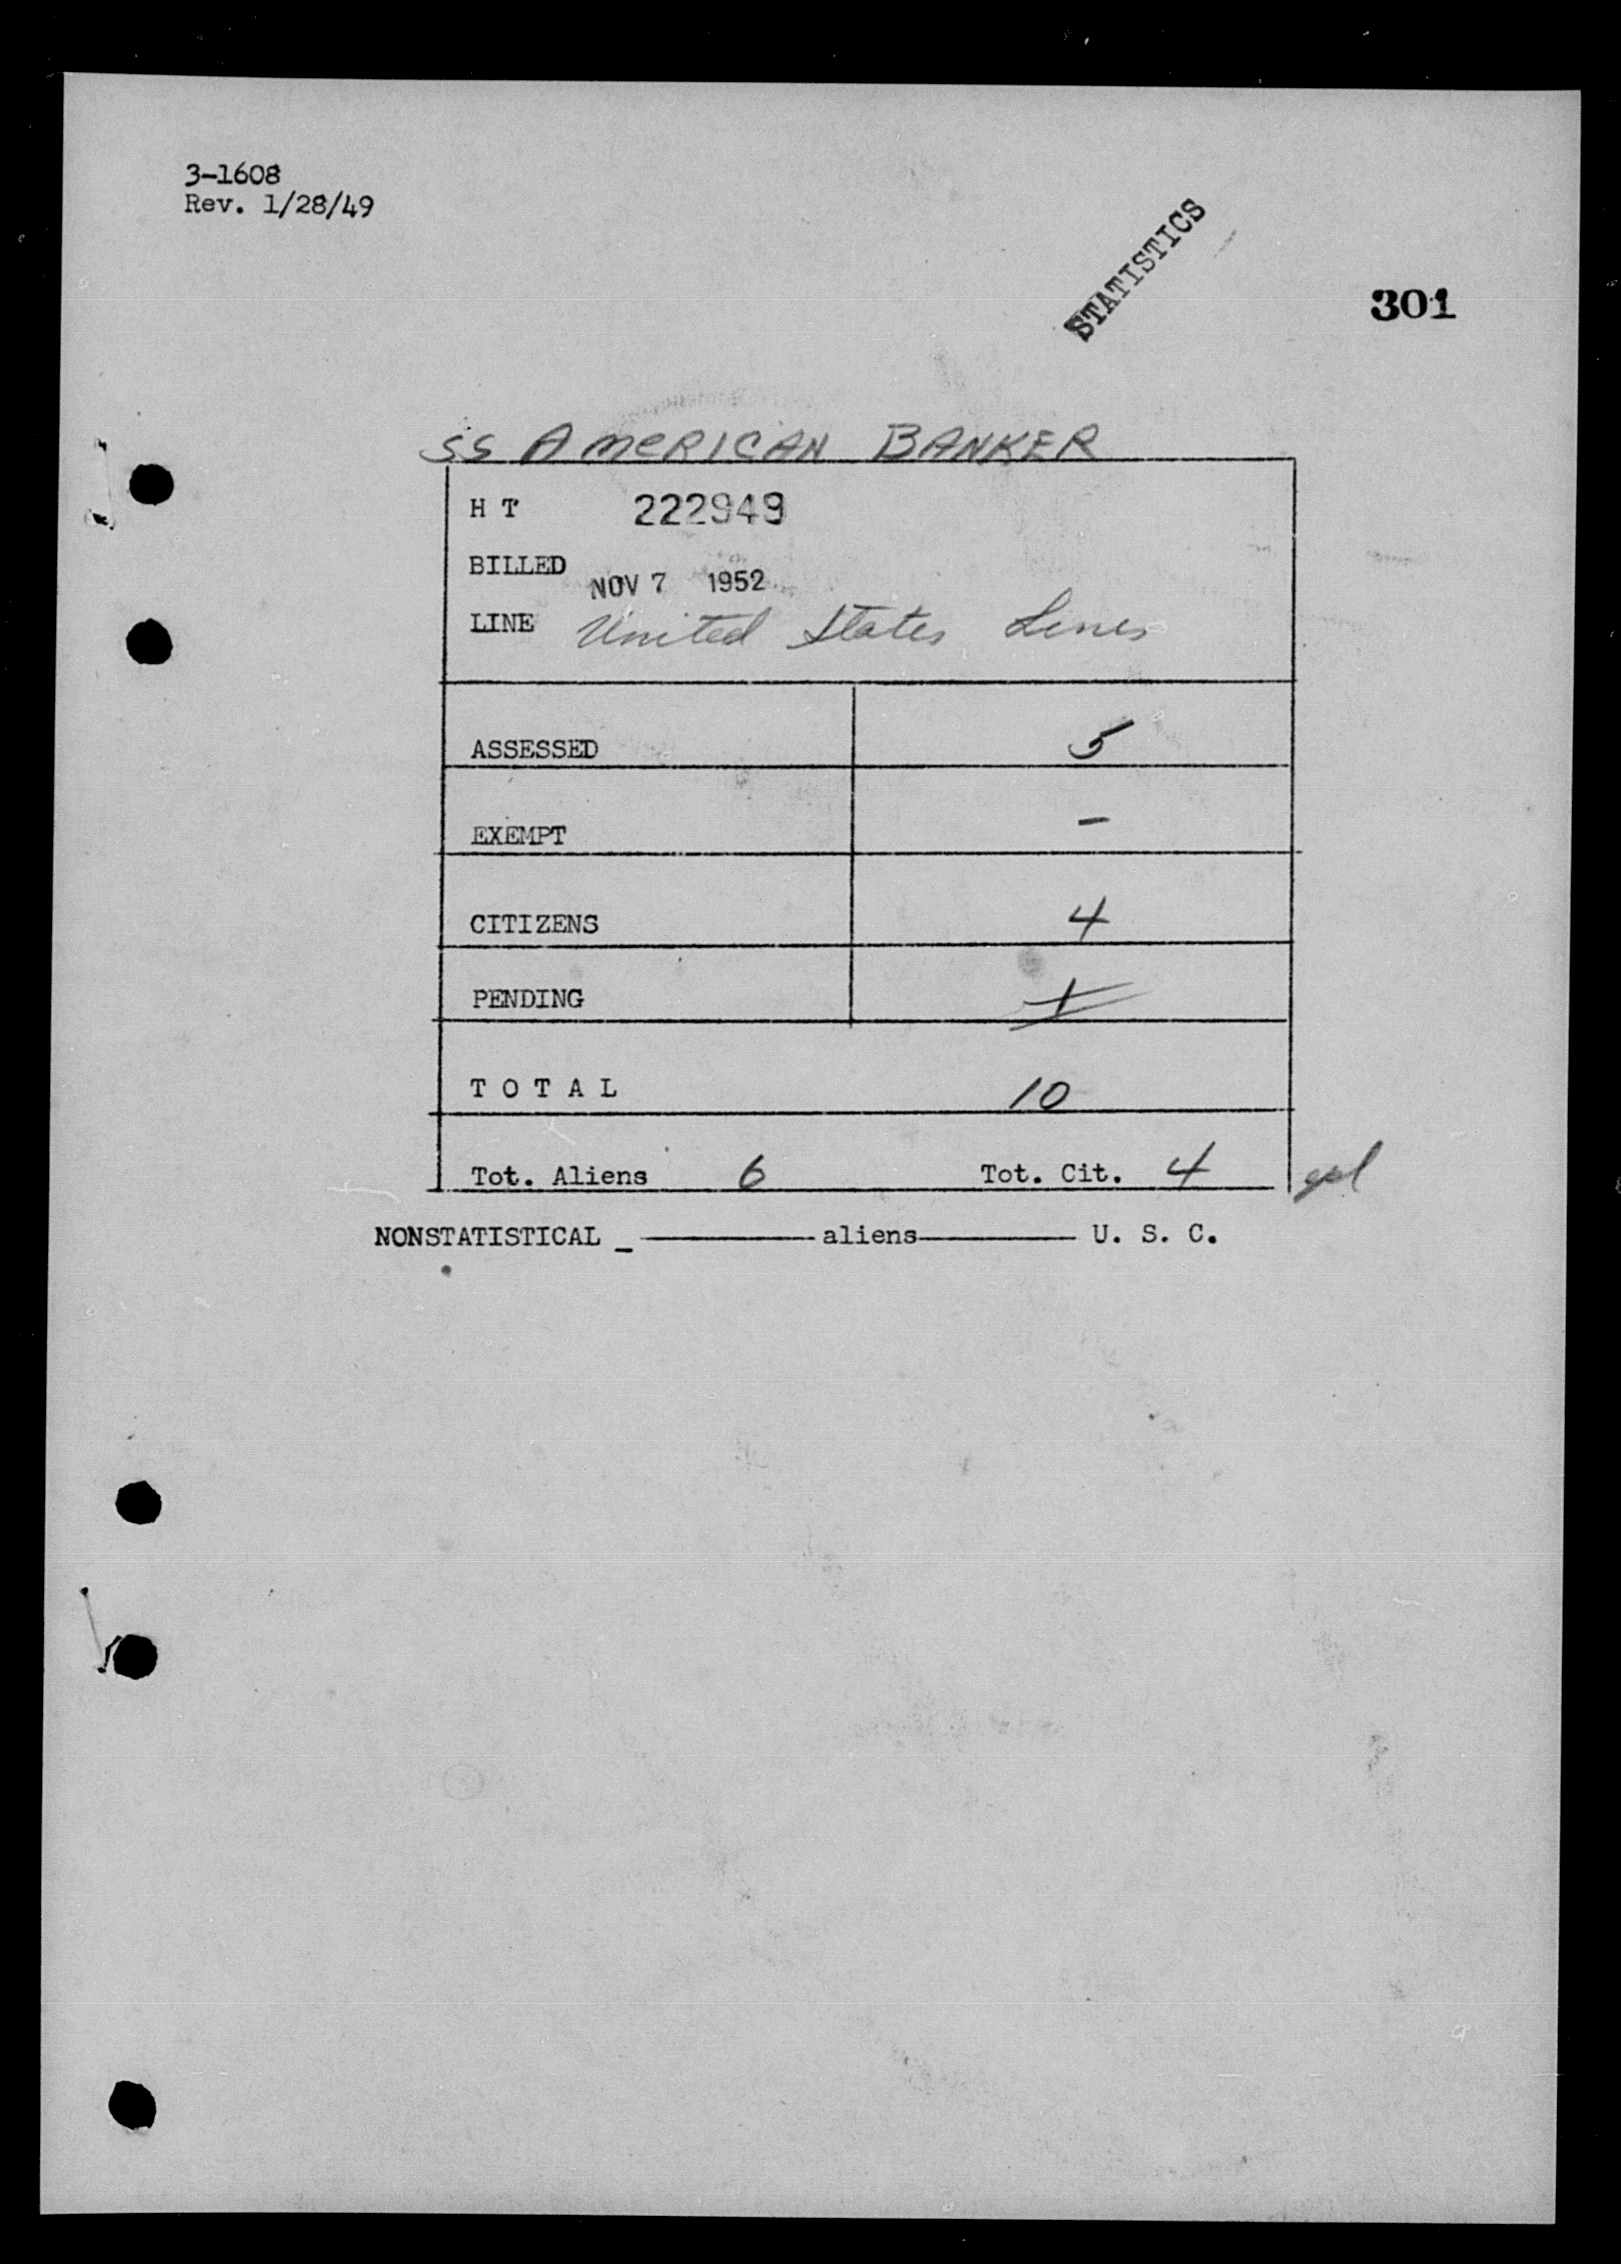 3-1608
Rev. 1/28/49
STATISTICS
301
SS AMERICAN BANKER
H T 222949
BILLED NOV 7 1952
LINE United States Lines
ASSESSED 5
EXEMPT -
CITIZENS 4
PENDING 1
T O T A L 10
Tot. Aliens 6 Tot. Cit. 4
NONSTATISTICAL _ ——— aliens ——— U. S. C.